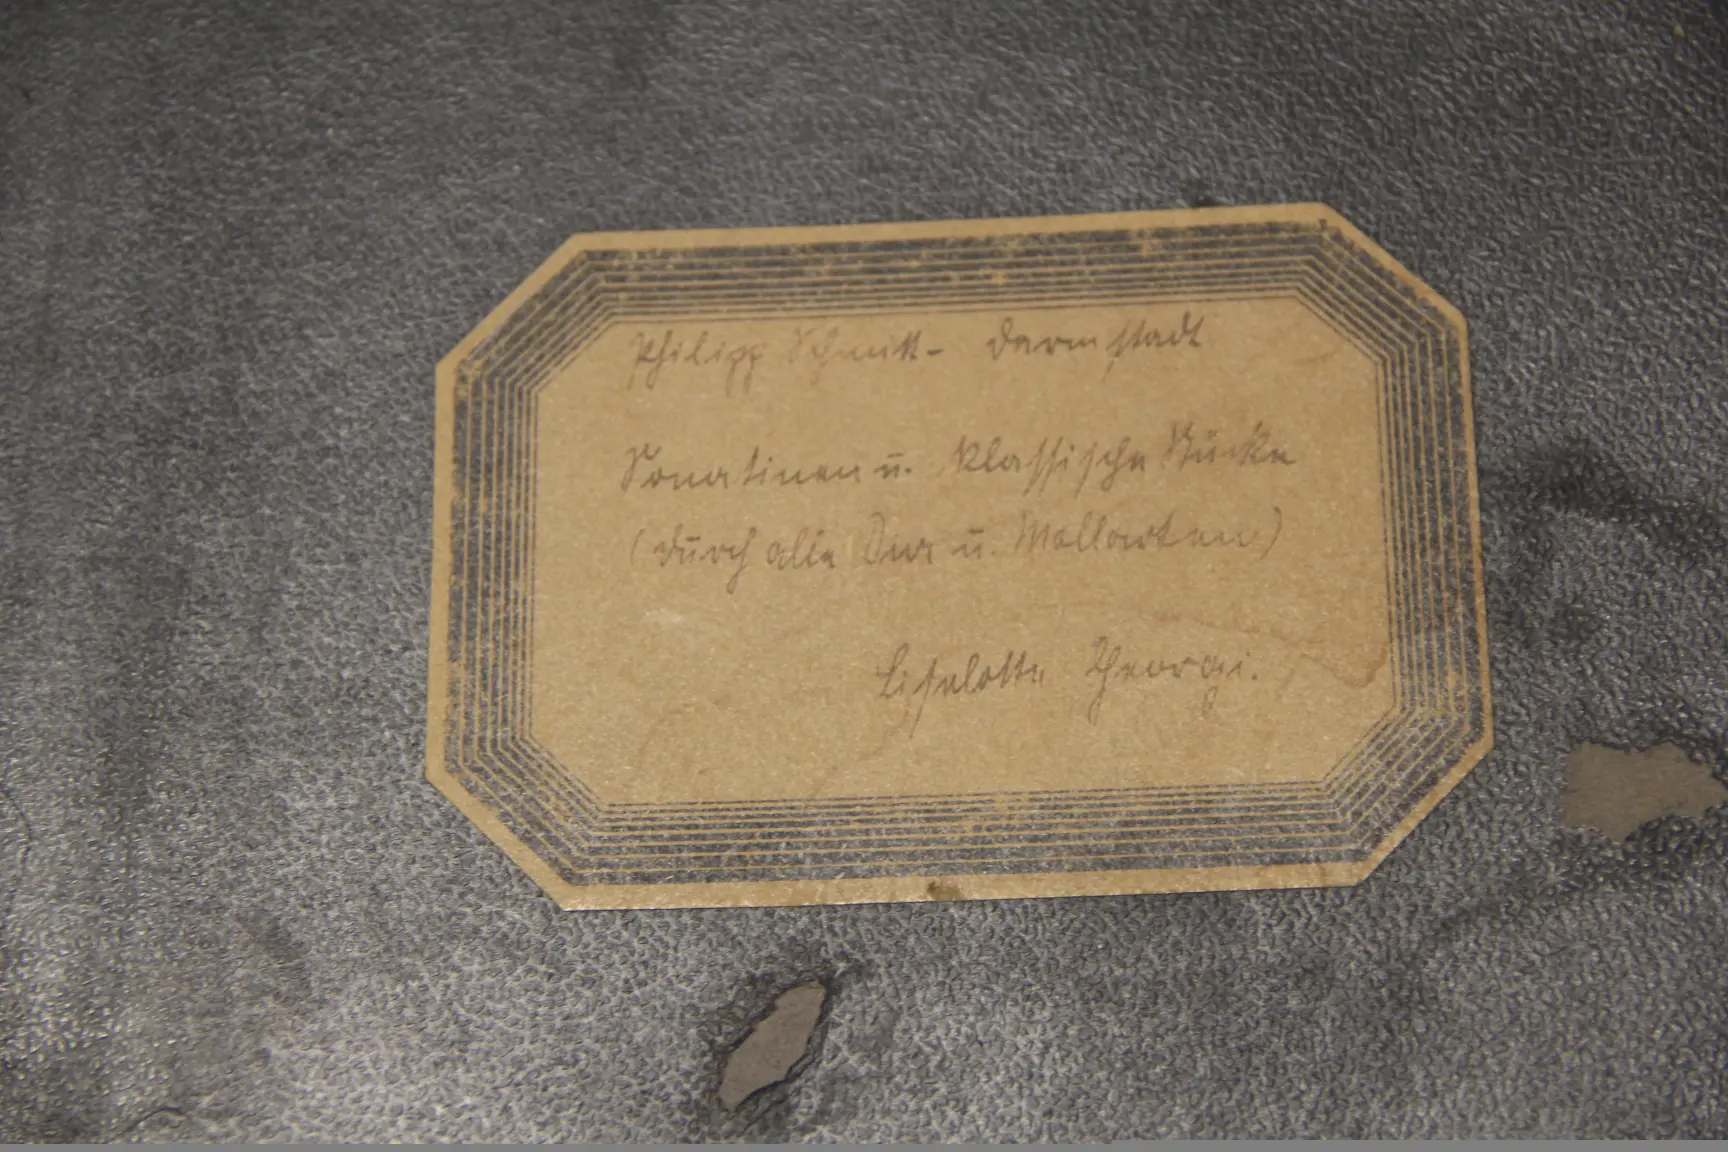 Philipp Schmitt - Darmstadt
Sonatinen u. klassische Stücke
(durch alle Dur u. Mollarten)
Liselotte Georgi.